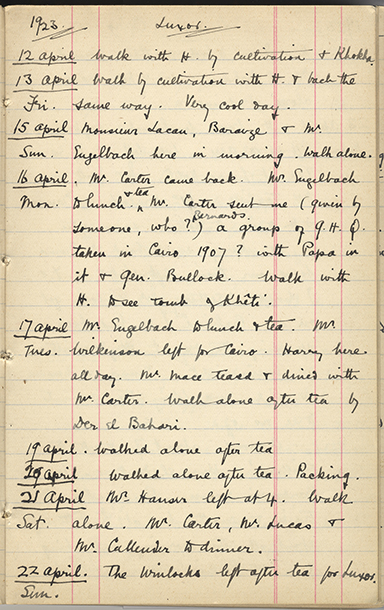 1923. Luxor.
12 April walk with H. by cultivation & Khokha.
13 April Walk by cultivation with H. & back the
Fri. same way. Very cool day.
15 April Monsieur Lacau, Baraize & Mr.
Sun. Engelbach here in morning. Walk alone.
16 April. Mr. Carter came back. Mr. Engelbach
Mon. to lunch & tea. Mr. Carter sent me (given by
someone, who? Barnards.) a group of G.H.Q.
taken in Cairo 1907? with Papa in
it & Gen. Bullock. Walk with
H. to see tomb of Khéti.
17 April Mr. Engelbach to lunch & tea. Mr.
Tues. Wilkinson left for Cairo. Harry here
all day. Mr. Mace tea'd & dined with
Mr. Carter. Walk alone after tea by
Der el Bahari.
19 April. Walked alone after tea
20 April Walked alone after tea. Packing.
21 April Mr. Hauser left at 4. Walk
Sat. alone. Mr. Carter, Mr. Lucas &
Mr. Callender to dinner.
22 April. The Winlocks left after tea for Luxor.
Sun.